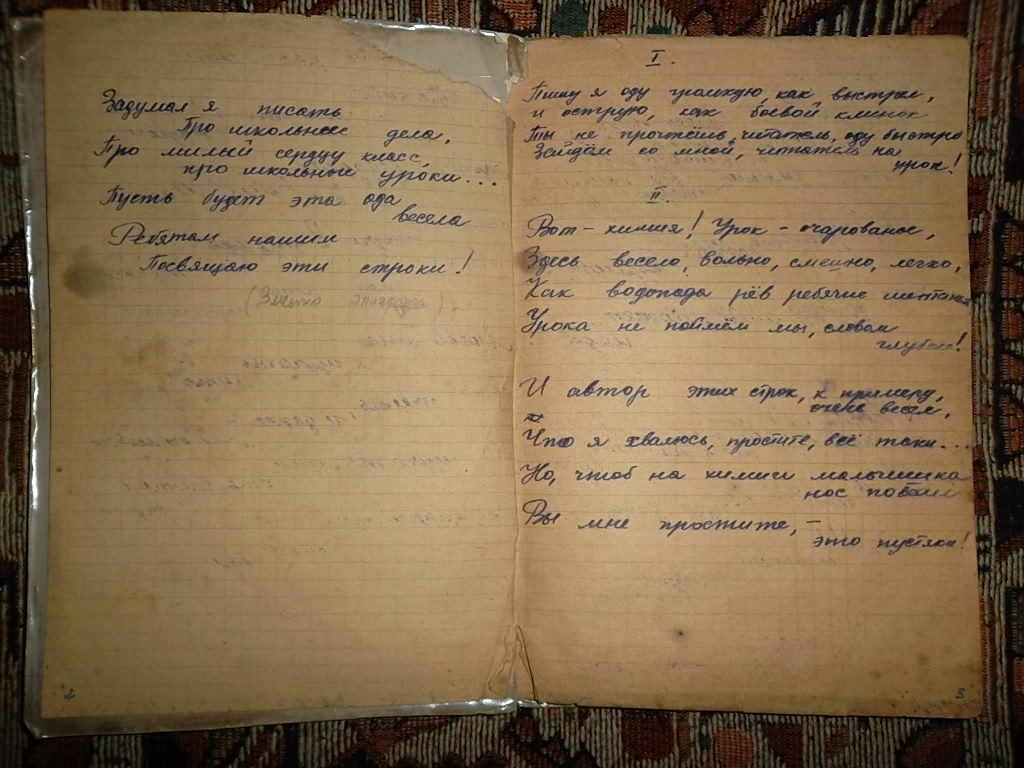 Задумал я писать
Про школьные дела,
Про милый сердцу класс,
про школьные уроки...
Пусть будет эта ода
весела
Ребятам нашим
Посвящаю эти строки!
(Вместо эпиграфа)
2
I.
Пишу я оду громкую, как выстрел,
и острую, как боевой клинок
Ты не прочтёшь, читатель, оду быстро
Зайдём со мной, читатель на
урок!
II.
Вот - химия! Урок - очарованье,
Здесь весело, вольно, смешно, легко,
Как водопада рёв ребячие
Урока не поймём мы, словом
глубоко!
И автор этих строк, к примеру,
очень весел,
Что я хвалюсь, простите, всё таки...
Но, чтоб на химии мальчишка
нос повесил
Вы мне простите, -
это пустяки!
3